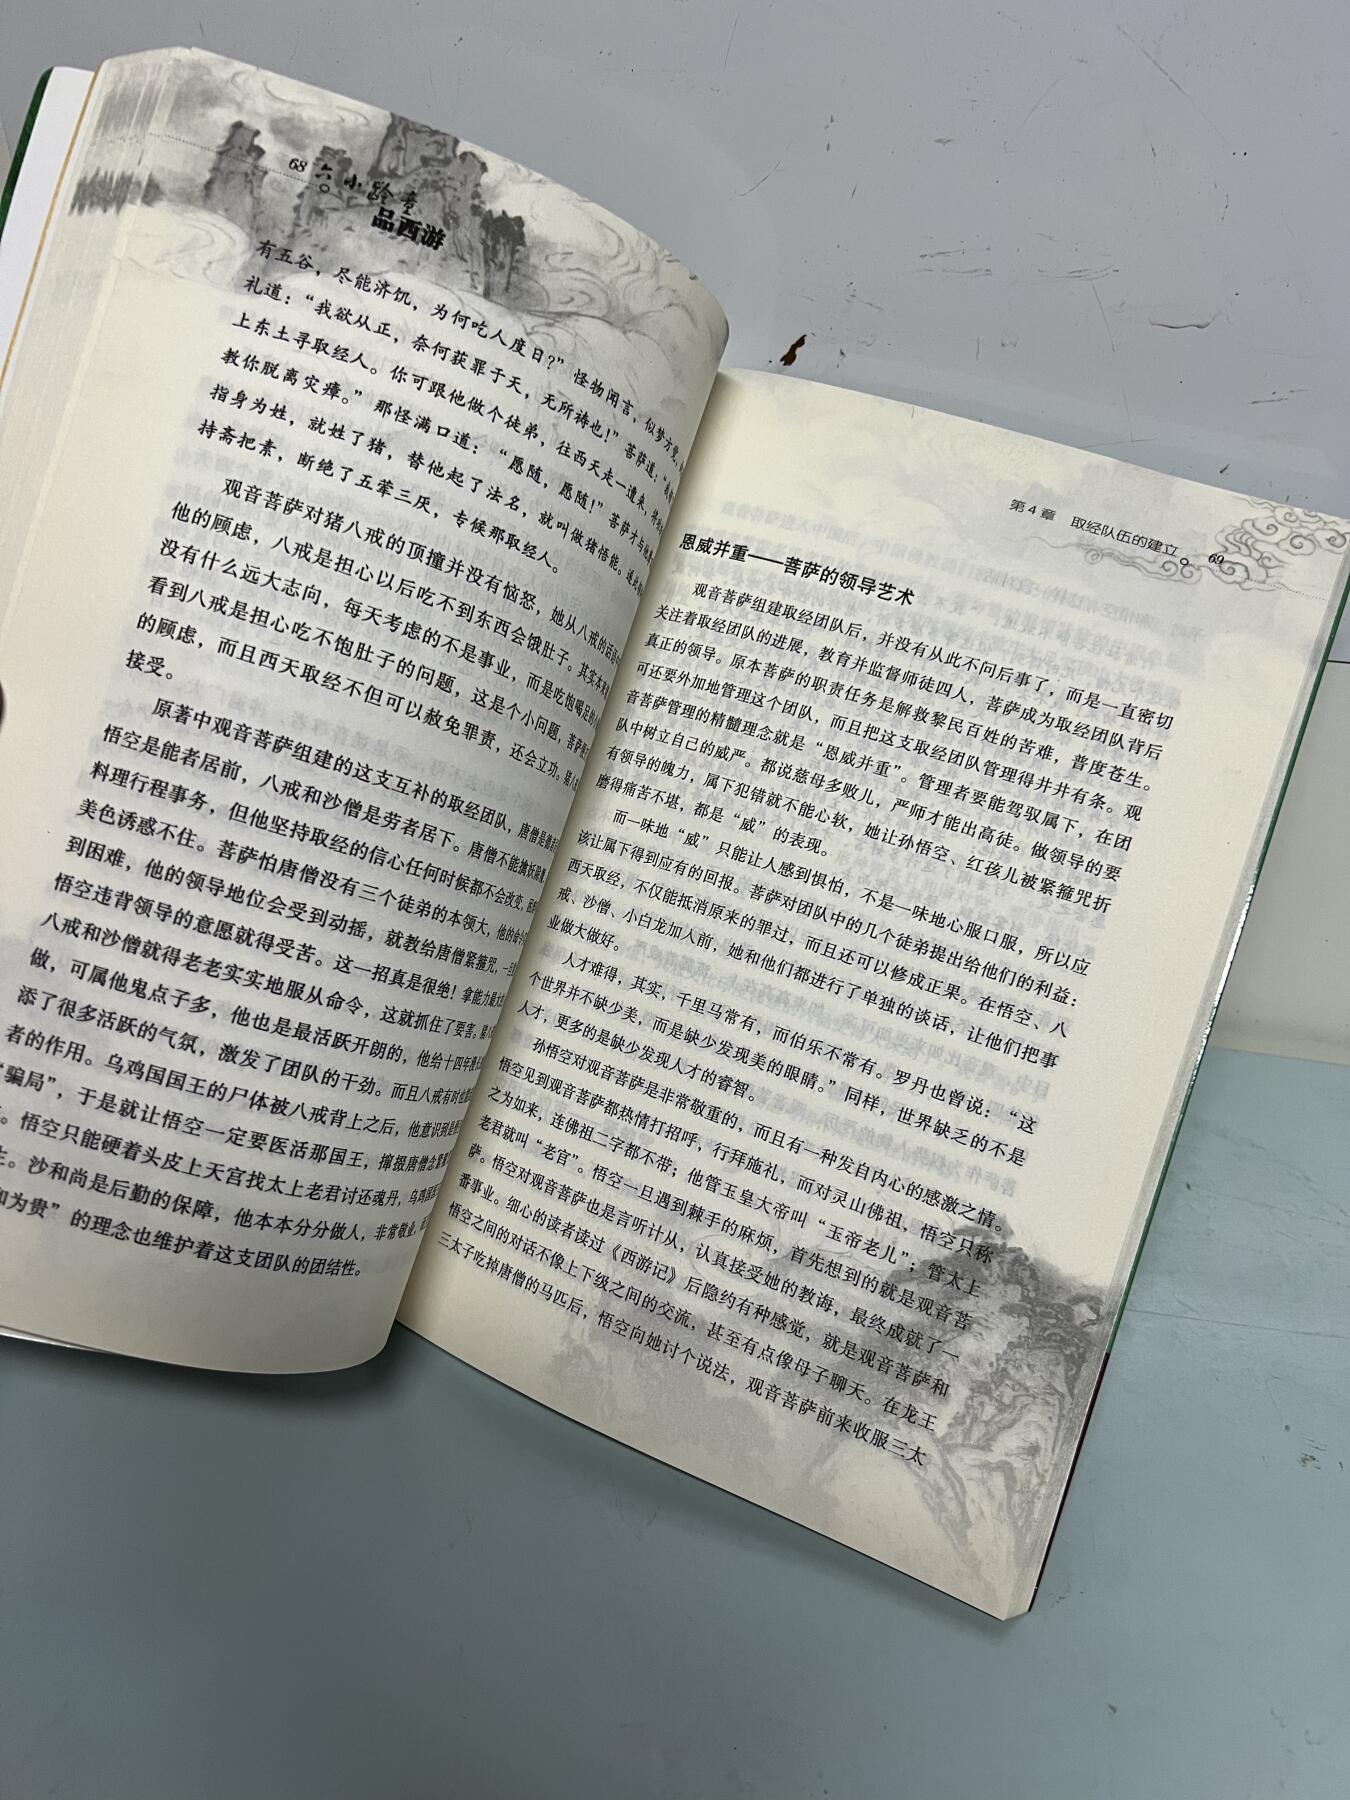 68
六小龄童
品西游
有五谷，尽能济饥，为何吃人度日？”怪物闻言，似梦方觉，
礼道：“我欲从正，奈何获罪于天，无所祷也！”菩萨道：“我
上东土寻取经人。你可跟他做个徒弟，往西天走一遭来，将功
教你脱离灾瘴。”那怪满口道：“愿随，愿随！”菩萨才与他
指身为姓，就姓了猪，替他起了法名，就叫做猪悟能。遂此
持斋把素，断绝了五荤三厌，专候那取经人。
观音菩萨对猪八戒的顶撞并没有恼怒，她从八戒的话语
他的顾虑，八戒是担心以后吃不到东西会饿肚子。其实本来
没有什么远大志向，每天考虑的不是事业，而是吃饱喝足的
看到八戒是担心吃不饱肚子的问题，这是个小问题，菩萨
的顾虑，而且西天取经不但可以赦免罪责，还会立功。猪八
接受。
原著中观音菩萨组建的这支互补的取经团队，唐僧是
悟空是能者居前，八戒和沙僧是劳者居下。唐僧不能擒妖
料理行程事务，但他坚持取经的信心任何时候都不会改变，
美色诱惑不住。菩萨怕唐僧没有三个徒弟的本领大，他的命令
到困难，他的领导地位会受到动摇，就教给唐僧紧箍咒，一旦
悟空违背领导的意愿就得受苦。这一招真是很绝！拿能力最大
八戒和沙僧就得老老实实地服从命令，这就抓住了要害。猪八
做，可属他鬼点子多，他也是最活跃开朗的，他给十四年
添了很多活跃的气氛，激发了团队的干劲。而且八戒有时也
者的作用。乌鸡国国王的尸体被八戒背上之后，他意识到是
“骗局”，于是就让悟空一定要医活那国王，撺掇唐僧念
。悟空只能硬着头皮上天宫找太上老君讨还魂丹，乌鸡国
生。沙和尚是后勤的保障，他本本分分做人，非常敬业，
和为贵”的理念也维护着这支团队的团结性。
第4章 取经队伍的建立。 69
恩威并重——菩萨的领导艺术
观音菩萨组建取经团队后，并没有从此不问后事了，而是一直密切
关注着取经团队的进展，教育并监督师徒四人，菩萨成为取经团队背后
真正的领导。原本菩萨的职责任务是解救黎民百姓的苦难，普度苍生。
可还要外加地管理这个团队，而且把这支取经团队管理得井井有条。观
音菩萨管理的精髓理念就是“恩威并重”。管理者要能驾驭属下，在团
队中树立自己的威严。都说慈母多败儿，严师才能出高徒。做领导的要
有领导的魄力，属下犯错就不能心软，她让孙悟空、红孩儿被紧箍咒折
磨得痛苦不堪，都是“威”的表现。
而一味地“威”只能让人感到惧怕，不是一味地心服口服，所以应
该让属下得到应有的回报。菩萨对团队中的几个徒弟提出给他们的利益：
西天取经，不仅能抵消原来的罪过，而且还可以修成正果。在悟空、八
戒、沙僧、小白龙加入前，她和他们都进行了单独的谈话，让他们把事
业做大做好。
人才难得，其实，千里马常有，而伯乐不常有。罗丹也曾说：“这
个世界并不缺少美，而是缺少发现美的眼睛。”同样，世界缺乏的不是
人才，更多的是缺少发现人才的睿智。
孙悟空对观音菩萨是非常敬重的，而且有一种发自内心的感激之情。
悟空见到观音菩萨都热情打招呼，行拜施礼，而对灵山佛祖，悟空只称
之为如来，连佛祖二字都不带；他管玉皇大帝叫“玉帝老儿”；管太上
老君就叫“老官”。悟空一旦遇到棘手的麻烦，首先想到的就是观音菩
萨。悟空对观音菩萨也是言听计从，认真接受她的教诲，最终成就了一
番事业。细心的读者读过《西游记》后隐约有种感觉，就是观音菩萨和
悟空之间的对话不像上下级之间的交流，甚至有点像母子聊天。在龙王
三太子吃掉唐僧的马匹后，悟空向她讨个说法，观音菩萨前来收服三太